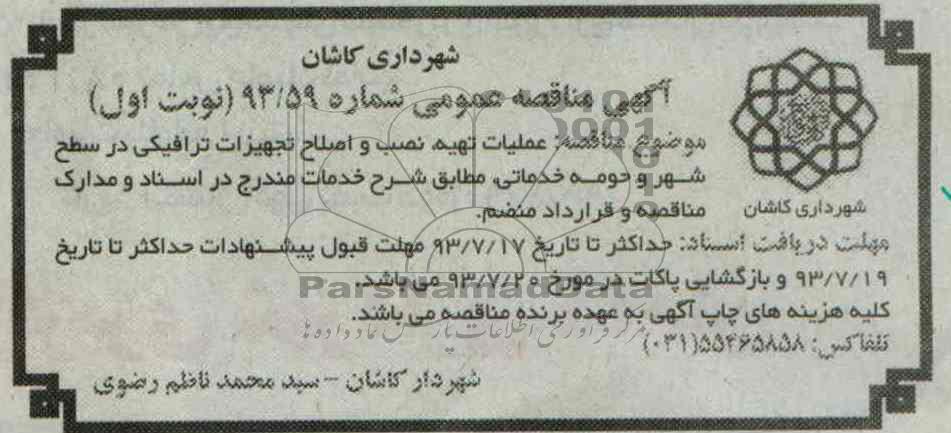 شهرداری کاشان
آگهی مناقصه عمومی شماره ۹۳/۵۹ (نوبت اول)
موضوع مناقصه: عملیات تهیه، نصب و اصلاح تجهیزات ترافیکی در سطح
شهر و حومه خدماتی، مطابق شرح خدمات مندرج در اسناد و مدارک
مناقصه و قرارداد منضم.
شهرداری کاشان
مهلت دریافت اسناد: حداکثر تا تاریخ ۹۳/۷/۱۷ مهلت قبول پیشنهادات حداکثر تا تاریخ
۹۳/۷/۱۹ و بازگشایی پاکات در مورخ ۹۳/۷/۲۰ می باشد.
ParsNamadData
کلیه هزینه های چاپ آگهی به عهده برنده مناقصه می باشد.
مرکز فرآوری اطلاعات پارس نماد داده ها
تلفاکس: ۵۵۴۶۵۸۵۸(۰۳۱)
شهردار کاشان – سید محمد ناظم رضوی